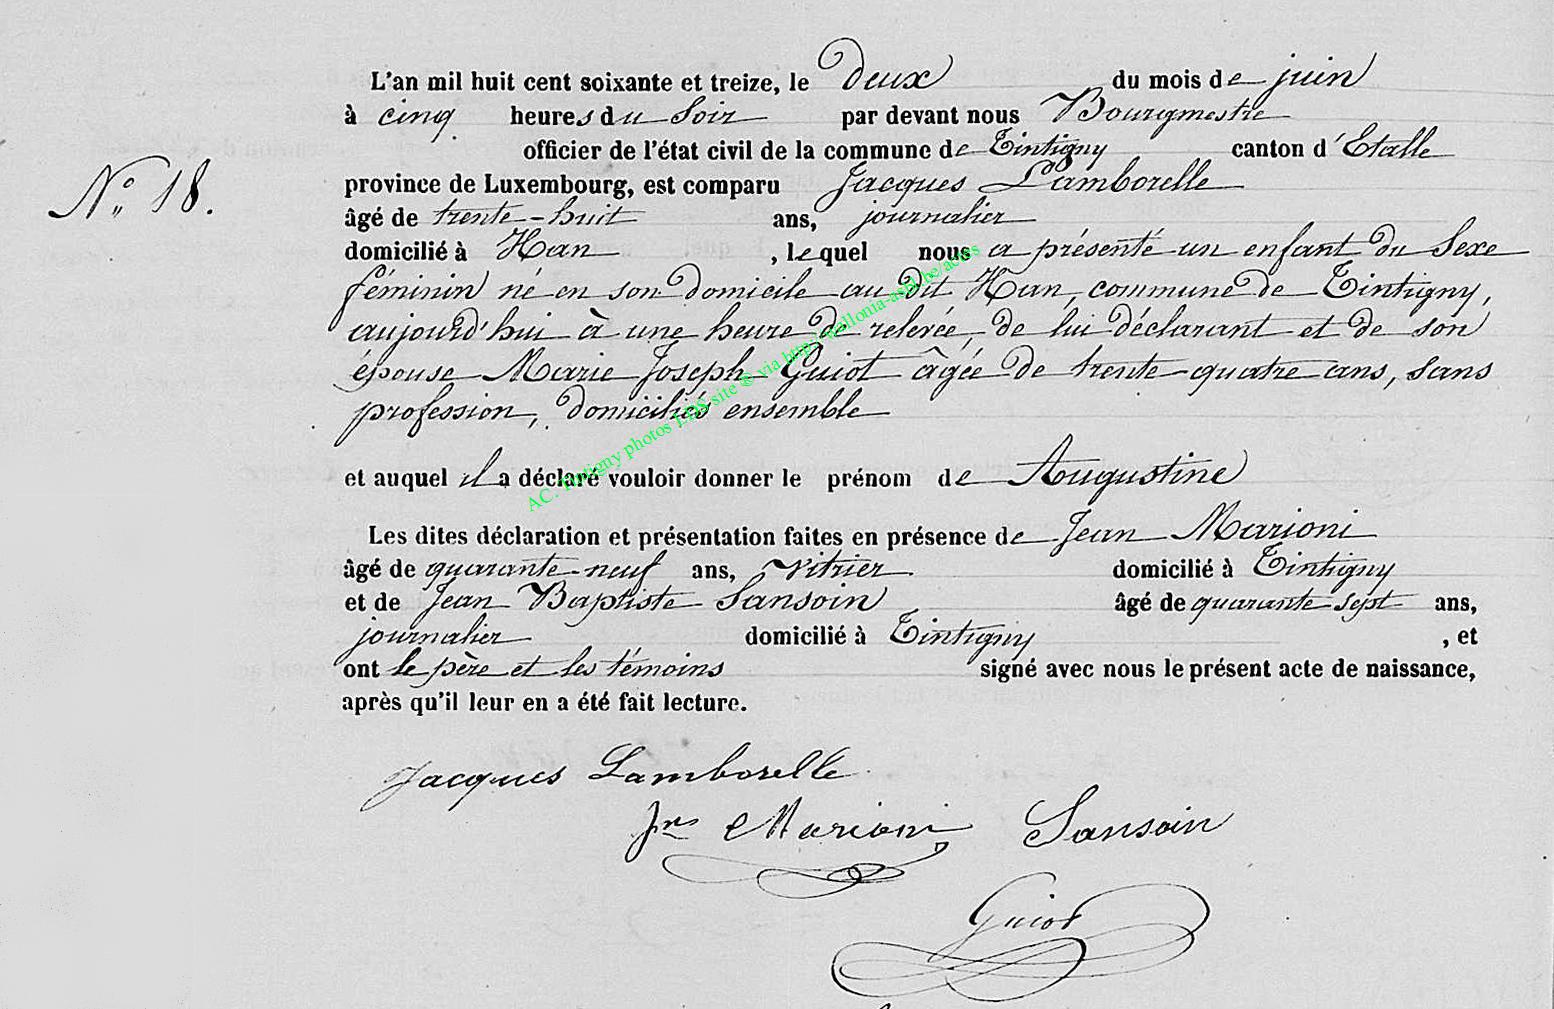 L'an mil huit cent soixante et treize, le deux du mois de juin
à cinq heures du Soir par devant nous Bourgmestre
officier de l'état civil de la commune de Tintigny canton d'Etalle
N°. 18.
province de Luxembourg, est comparu Jacques Lamborelle
âgé de trente-huit ans, journalier
domicilié à Han , lequel nous a présenté un enfant du Sexe
féminin né en son domicile au dit Han, commune de Tintigny,
aujourd'hui à une heure de relevée, de lui déclarant et de son
épouse Marie Joseph Guiot âgée de trente-quatre ans, sans
profession, domiciliés ensemble
et auquel il a déclaré vouloir donner le prénom de Augustine
Les dites déclaration et présentation faites en présence de Jean Marioni
âgé de quarante-neuf ans, vitrier domicilié à Tintigny
et de Jean Baptiste Sansoin âgé de quarante sept ans,
journalier domicilié à Tintigny , et
ont le père et les témoins signé avec nous le présent acte de naissance,
après qu'il leur en a été fait lecture.
Jacques Lamborelle
Jns Marioni Sansoin
Guiot
AC. Tintigny photos LDS site ® via http://wallonia-asbl.be/actes